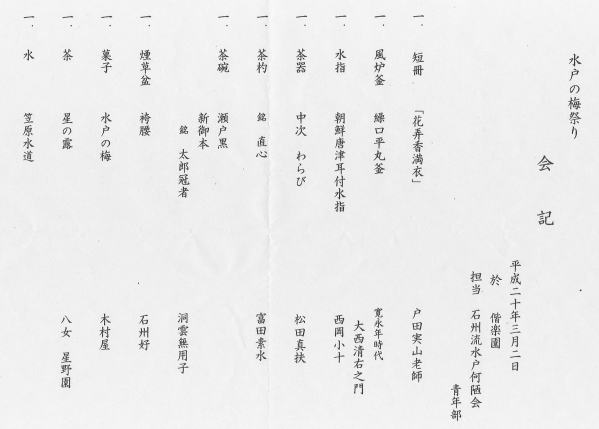 水戸の梅祭り
会記
平成二十年三月二日
於 偕楽園
担当 石州流水戸何陋会
青年部
一. 短冊 「花弄香満衣」 戸田実山老師
一. 風炉釜 繰口平丸釜 寛永年時代
大西清右之門
一. 水指 朝鮮唐津耳付水指 西岡小十
一. 茶器 中次 わらび 松田真扶
一. 茶杓 銘 直心 富田素水
一. 茶碗 瀬戸黒
新御本
銘 太郎冠者 洞雲無用子
一. 煙草盆 袴腰 石州好
一. 菓子 水戸の梅 木村屋
一. 茶 星の露 八女 星野園
一. 水 笠原水道